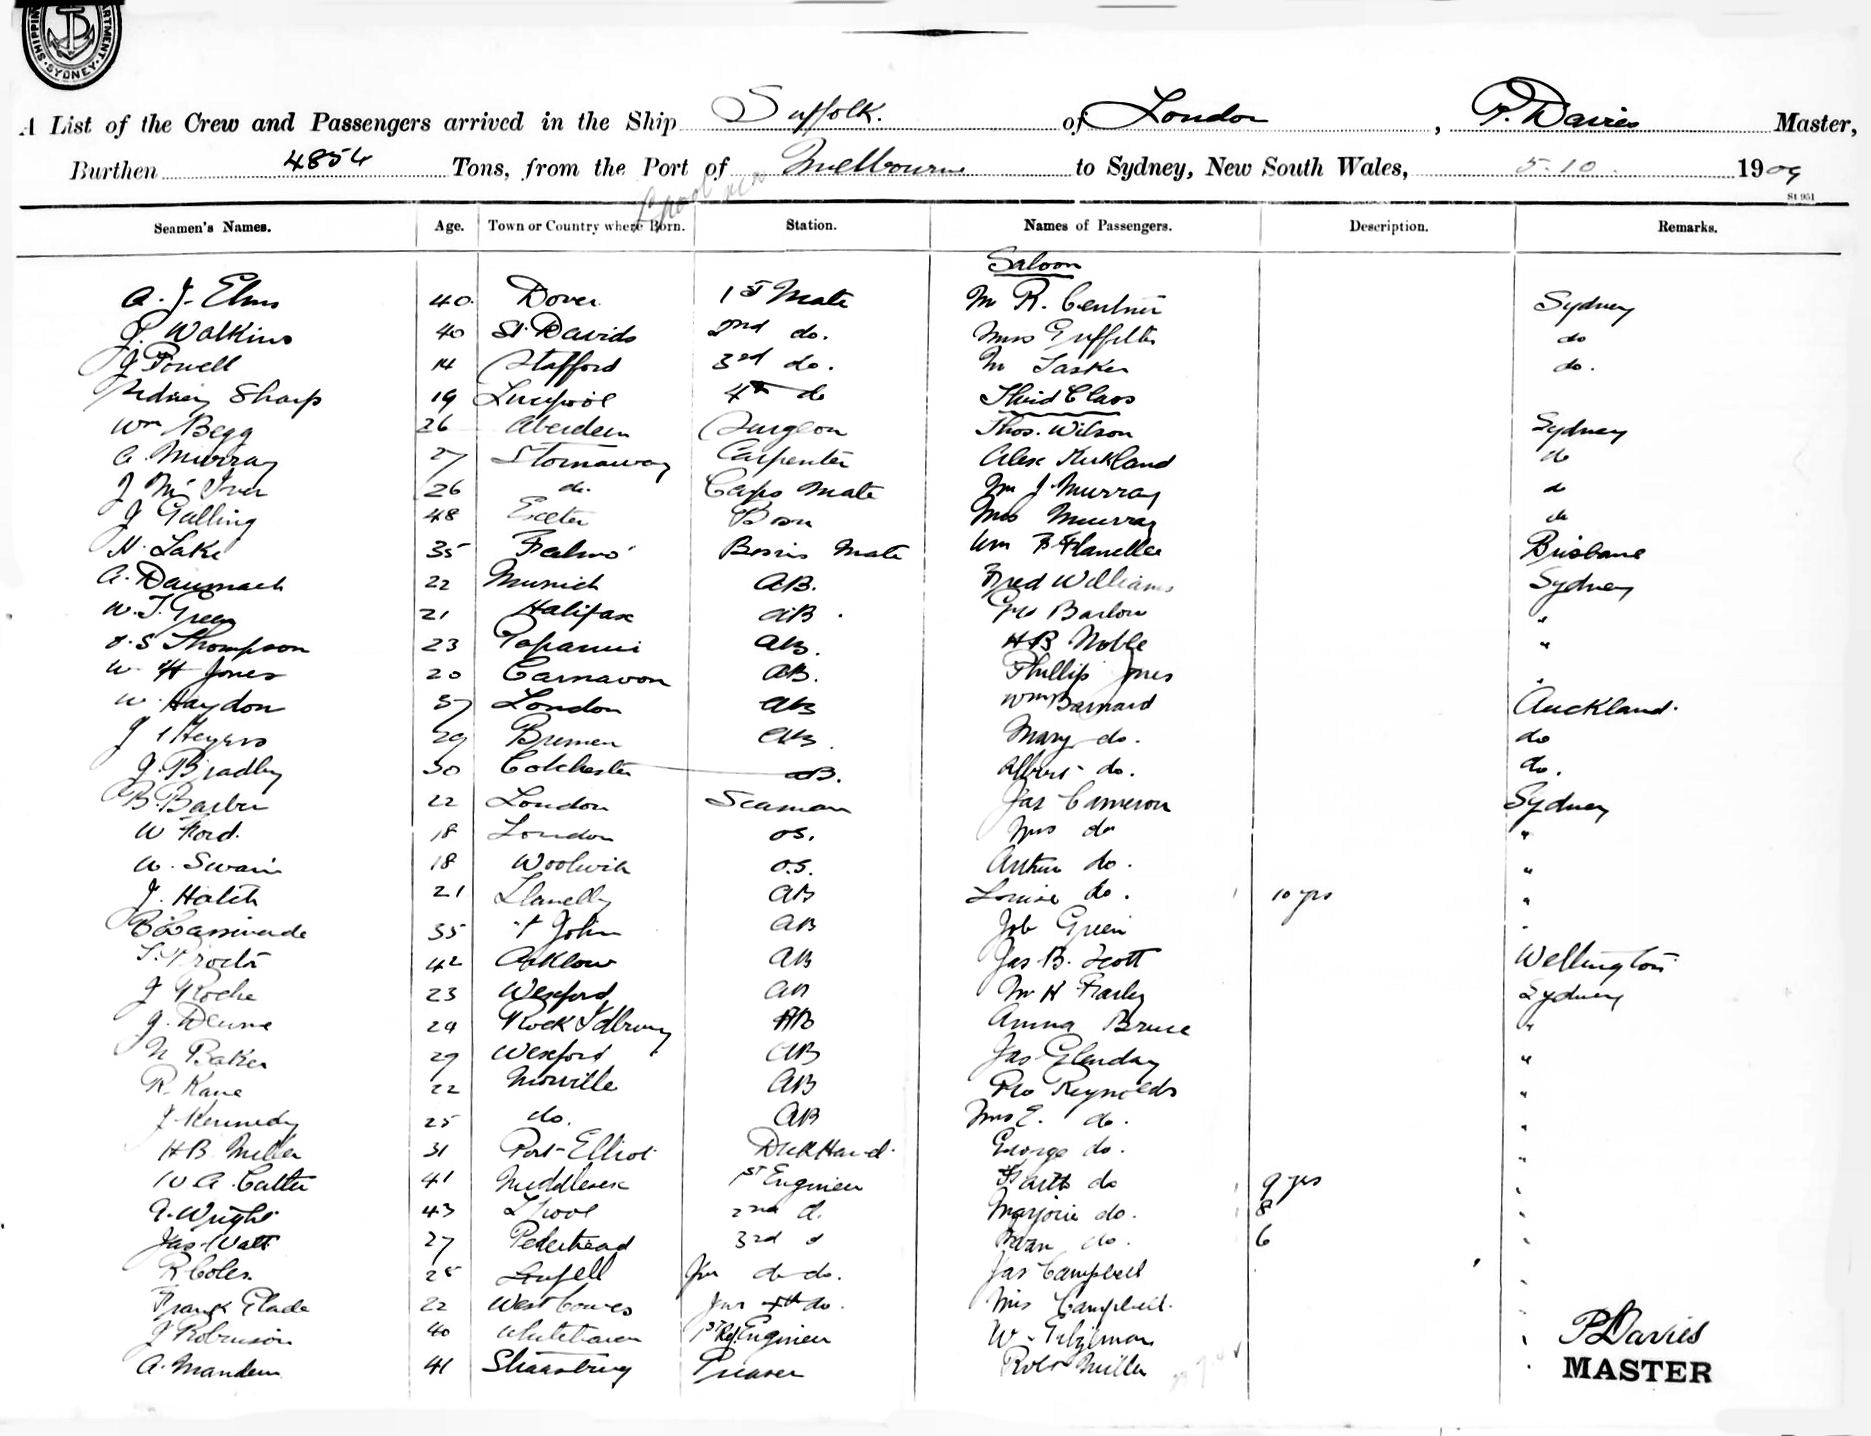 SHIPPING DEPARTMENT SYDNEY
A List of the Crew and Passengers arrived in the Ship Suffolk. of London, P. Davies Master,
Burthen 4854 Tons, from the Port of Melbourne to Sydney, New South Wales, 5.10. 1909
L'pool via
St 951
Seamen's Names. Age. Town or Country where Born. Station. Names of Passengers. Description. Remarks.
Saloon
A. J. Elms 40 Dover 1st Mate Mr R. Centner Sydney
P. Watkins 40 St. Davids 2nd do. Miss Griffiths do
J Powell Stafford 3rd do. Mr Tasker do.
Sidney Sharp 19 Liverpool 4th do Third Class
Wm Begg 26 Aberdeen Surgeon Thos. Wilson Sydney
A. Murray 27 Stornaway Carpenter Alex Kirkland do
J McIver 26 do. Carps Mate Mr J. Murray do
J Galling 48 Exeter Bosn Mrs Murray do
N. Lake 35 Falmo' Bosns Mate Wm Brisbane
A. Daumach 22 Munich AB. Fred Williams Sydney
W. T. Green 21 Halifax AB. Geo Barlow "
S Thompson 23 Papanui AB. H B Noble "
W. H Jones 20 Carnavon AB. Phillip Jones "
W. Haydon 37 London AB Wm Barnard Auckland.
J Heyers 29 Bremen AB. Mary do. do
J. Bradley 30 Colchester AB. Albert do. do.
B. Barber 22 London Seaman Jas Cameron Sydney
W Ford. 18 London OS. Mrs do "
W. Swain 18 Woolwich O.S. Arthur do. "
J. 21 Llanelly AB Louise do. 10 yrs "
35 St John AB Job Green "
Procter 42 Arklow AB Jas. B. Scott Wellington
J Roche 23 Wexford AB Mr H Farley Sydney
J. 24 Rock AB Anna Bruce "
N Baker 29 Wexford AB Jas Glenday "
R. Kane 22 Moville AB Geo Reynolds "
J. Kennedy 25 do. AB Mrs E. do. "
H B Miller 31 Port Elliot Deck Hand. George do. "
W A. Cutter 41 Middlesex 1st Engineer Faith do 9 yrs "
A. Wright 43 L'pool 2nd d. Marjorie do. 8 "
Jas Watt 27 Peterhead 3rd d do. 6 "
R Coles. 25 Jnr do do. Jas Campbell "
Frank Glade 22 West Cowes Jnr 4th do. Mrs Campbell. "
J Robinson 40 Whitehaven 1st Ref. Engineer W. "
A. Mandem 41 Greaser Robt Miller "
P Davies
MASTER